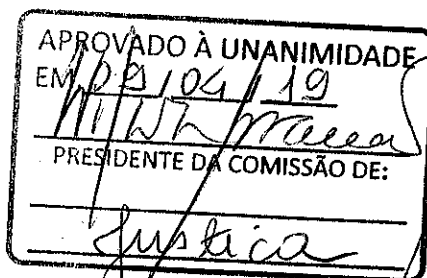 APROVADO À UNANIMIDADE
EM 09/04/19
PRESIDENTE DA COMISSÃO DE:
Justiça